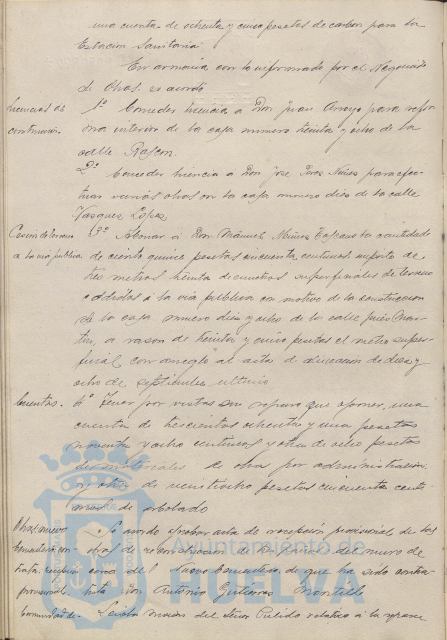 una cuenta de ochenta y cinco pesetas de carbon para la
Estacion Sanitaria
En armonia con lo informado por el Negociado
de Obras, se acordó
Licencias de
construccion.
1º Conceder licencia a Don Juan Arroyo para refor
ma interior de la casa numero treinta y ocho de la
calle Rascon.
2º Conceder licencia a Don José Perez Nuñez para efec
tuar varias obras en la casa numero dies de la calle
Vasquez Lopez
Cesion de terreno
a la via publica
3º Abonar a Don Manuel Muñoz la cantidad
de ciento quince pesetas cincuenta centimos importe de
tres metros treinta decimetros superficiales de terreno
cedidos a la via publica con motivo de la construccion
de la casa numero dies y ocho de la calle
a razon de treinta y cinco pesetas el metro super
ficial con arreglo al acta de alineacion de dies y
ocho de septiembre ultimo
Cuentas.
4º Tener por vistas sin reparo que oponer, una
cuenta de trescientas ochenta y una pesetas
noventa y ocho centimos y otra de ocho pesetas
de materiales de obra por administracion
y otra de veintiocho pesetas cincuenta centi
mos de arbolado
Obras nuevo
Cementerio con
trata recepcion
provisional.
Se acordó aprobar acta de recepcion provisional de las
obras de construccion de del muro de
cerca del Nuevo Cementerio de que ha sido contra
tista Don Antonio Gutierrez Montillo
Leida mocion del Señor Pulido relativa a la
Ayuntamiento de
HUELVA